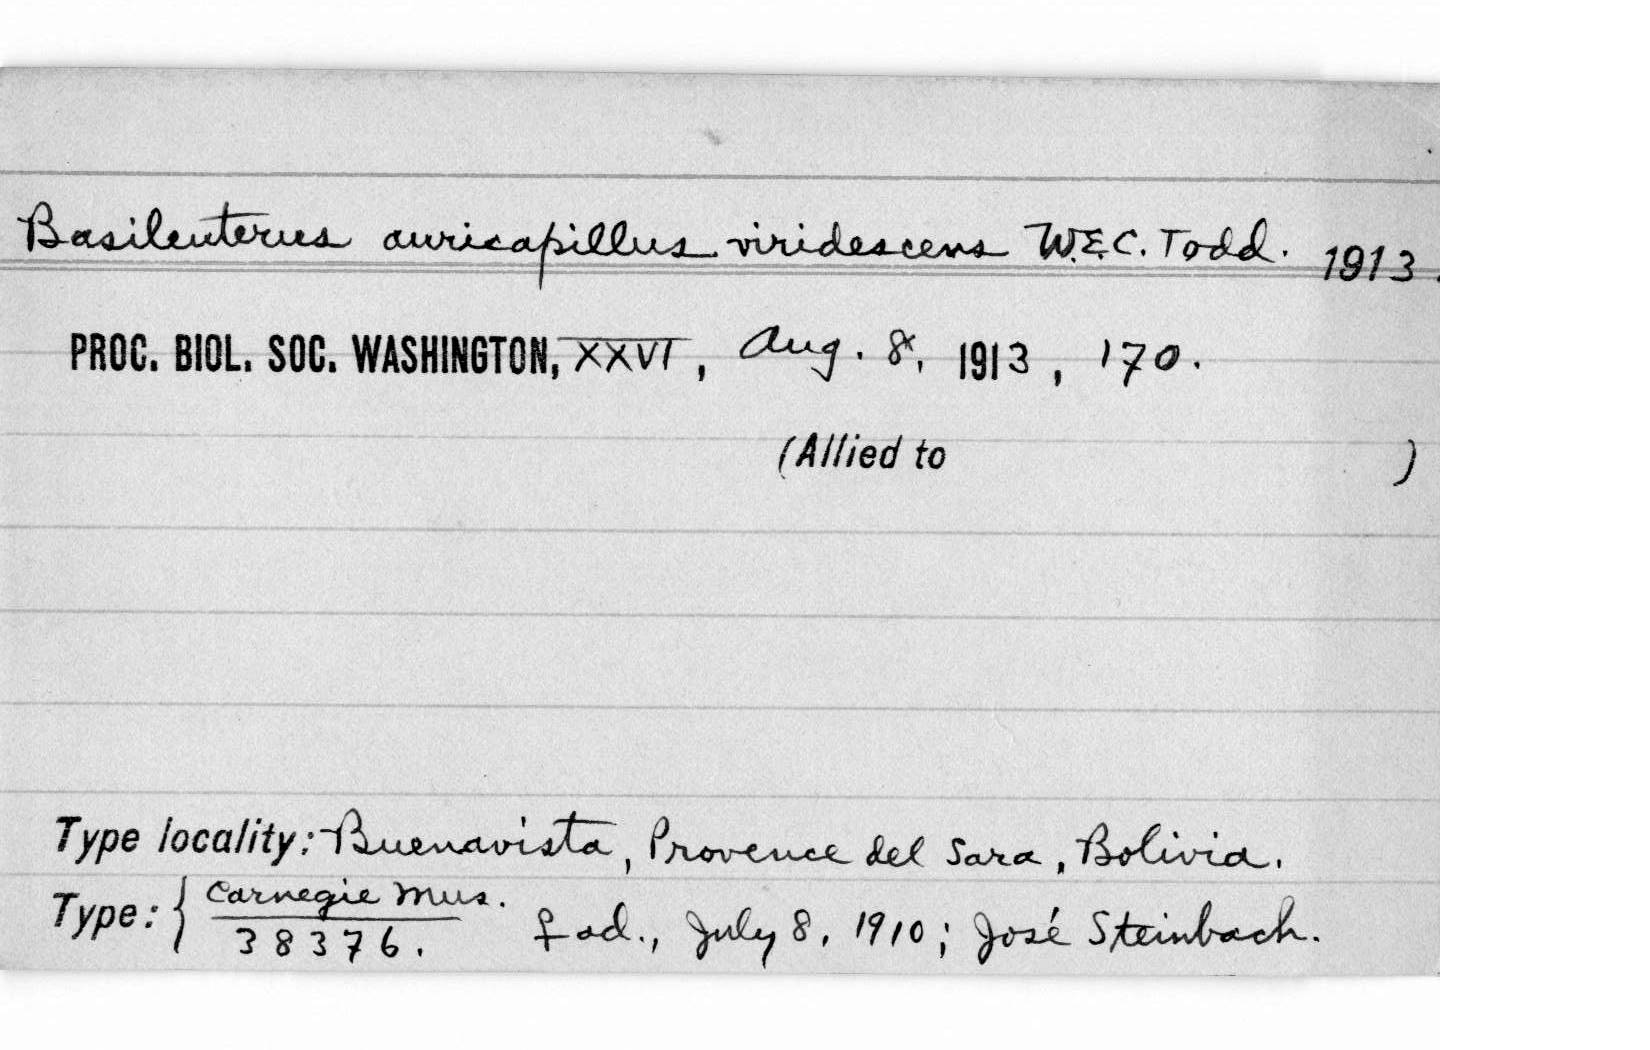 Basileuterus auricapillus viridescens W.E.C. Todd. 1913.
PROC. BIOL. SOC. WASHINGTON, XXVI, Aug. 8, 1913, 170.
(Allied to )
Type locality: Buenavista, Provence del Sara, Bolivia.
Type: { Carnegie Mus.
38376. ♀ ad., July 8, 1910; José Steinbach.